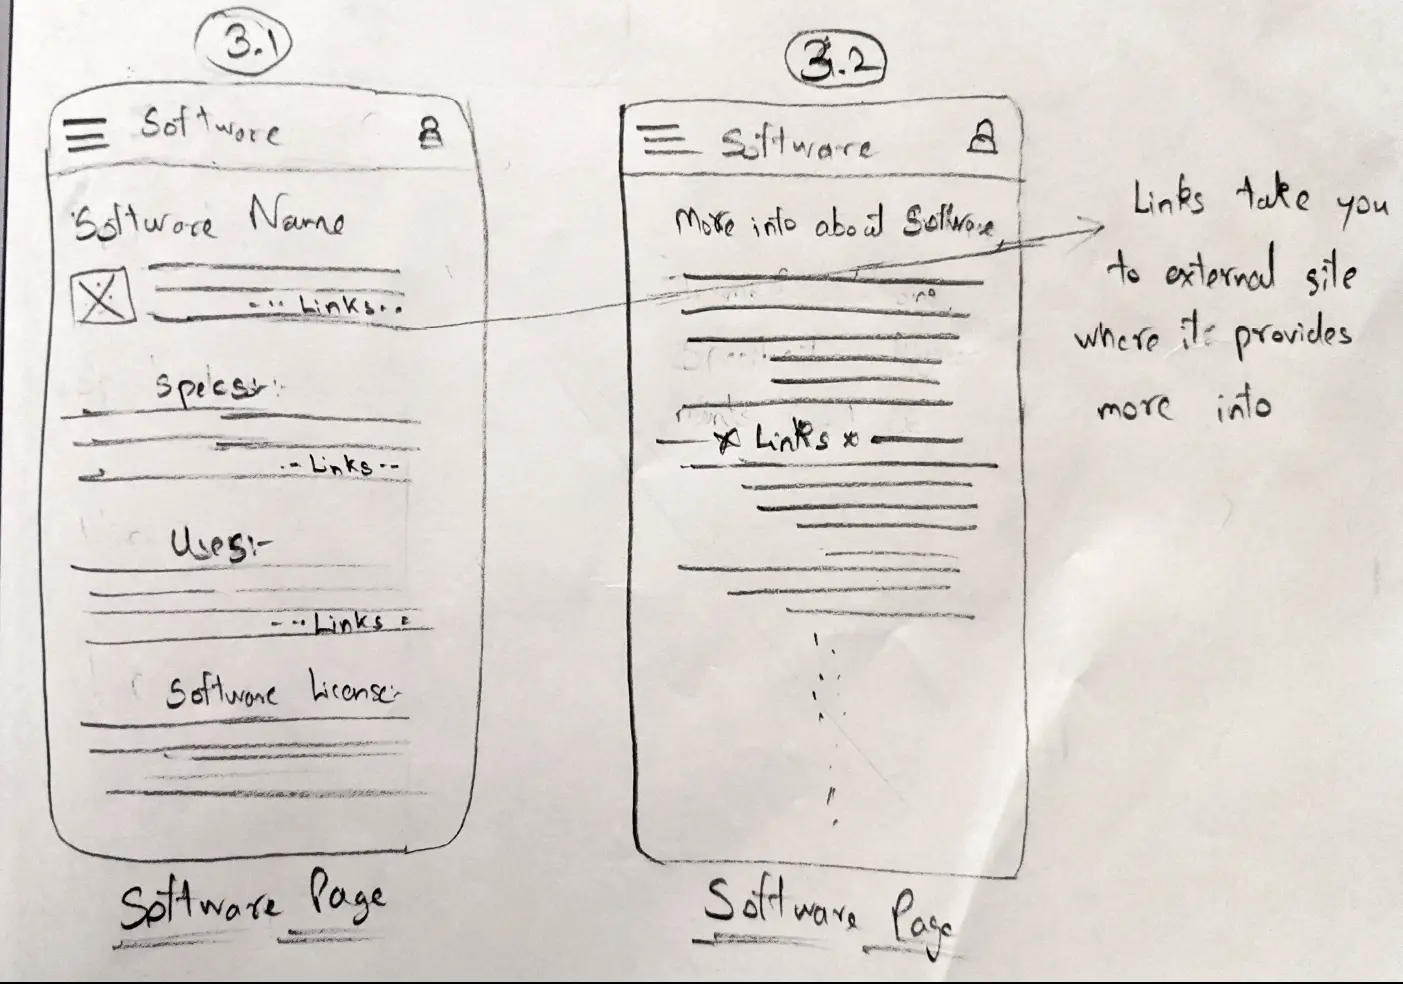 3.1
Software
Software Name
--- Links...
Specs:-
.-- Links --
Uses:-
--- Links =
Software License:-
Software Page
3.2
Software
More into about Software
x Links x
Software Page
Links take you
to external site
where its provides
more into